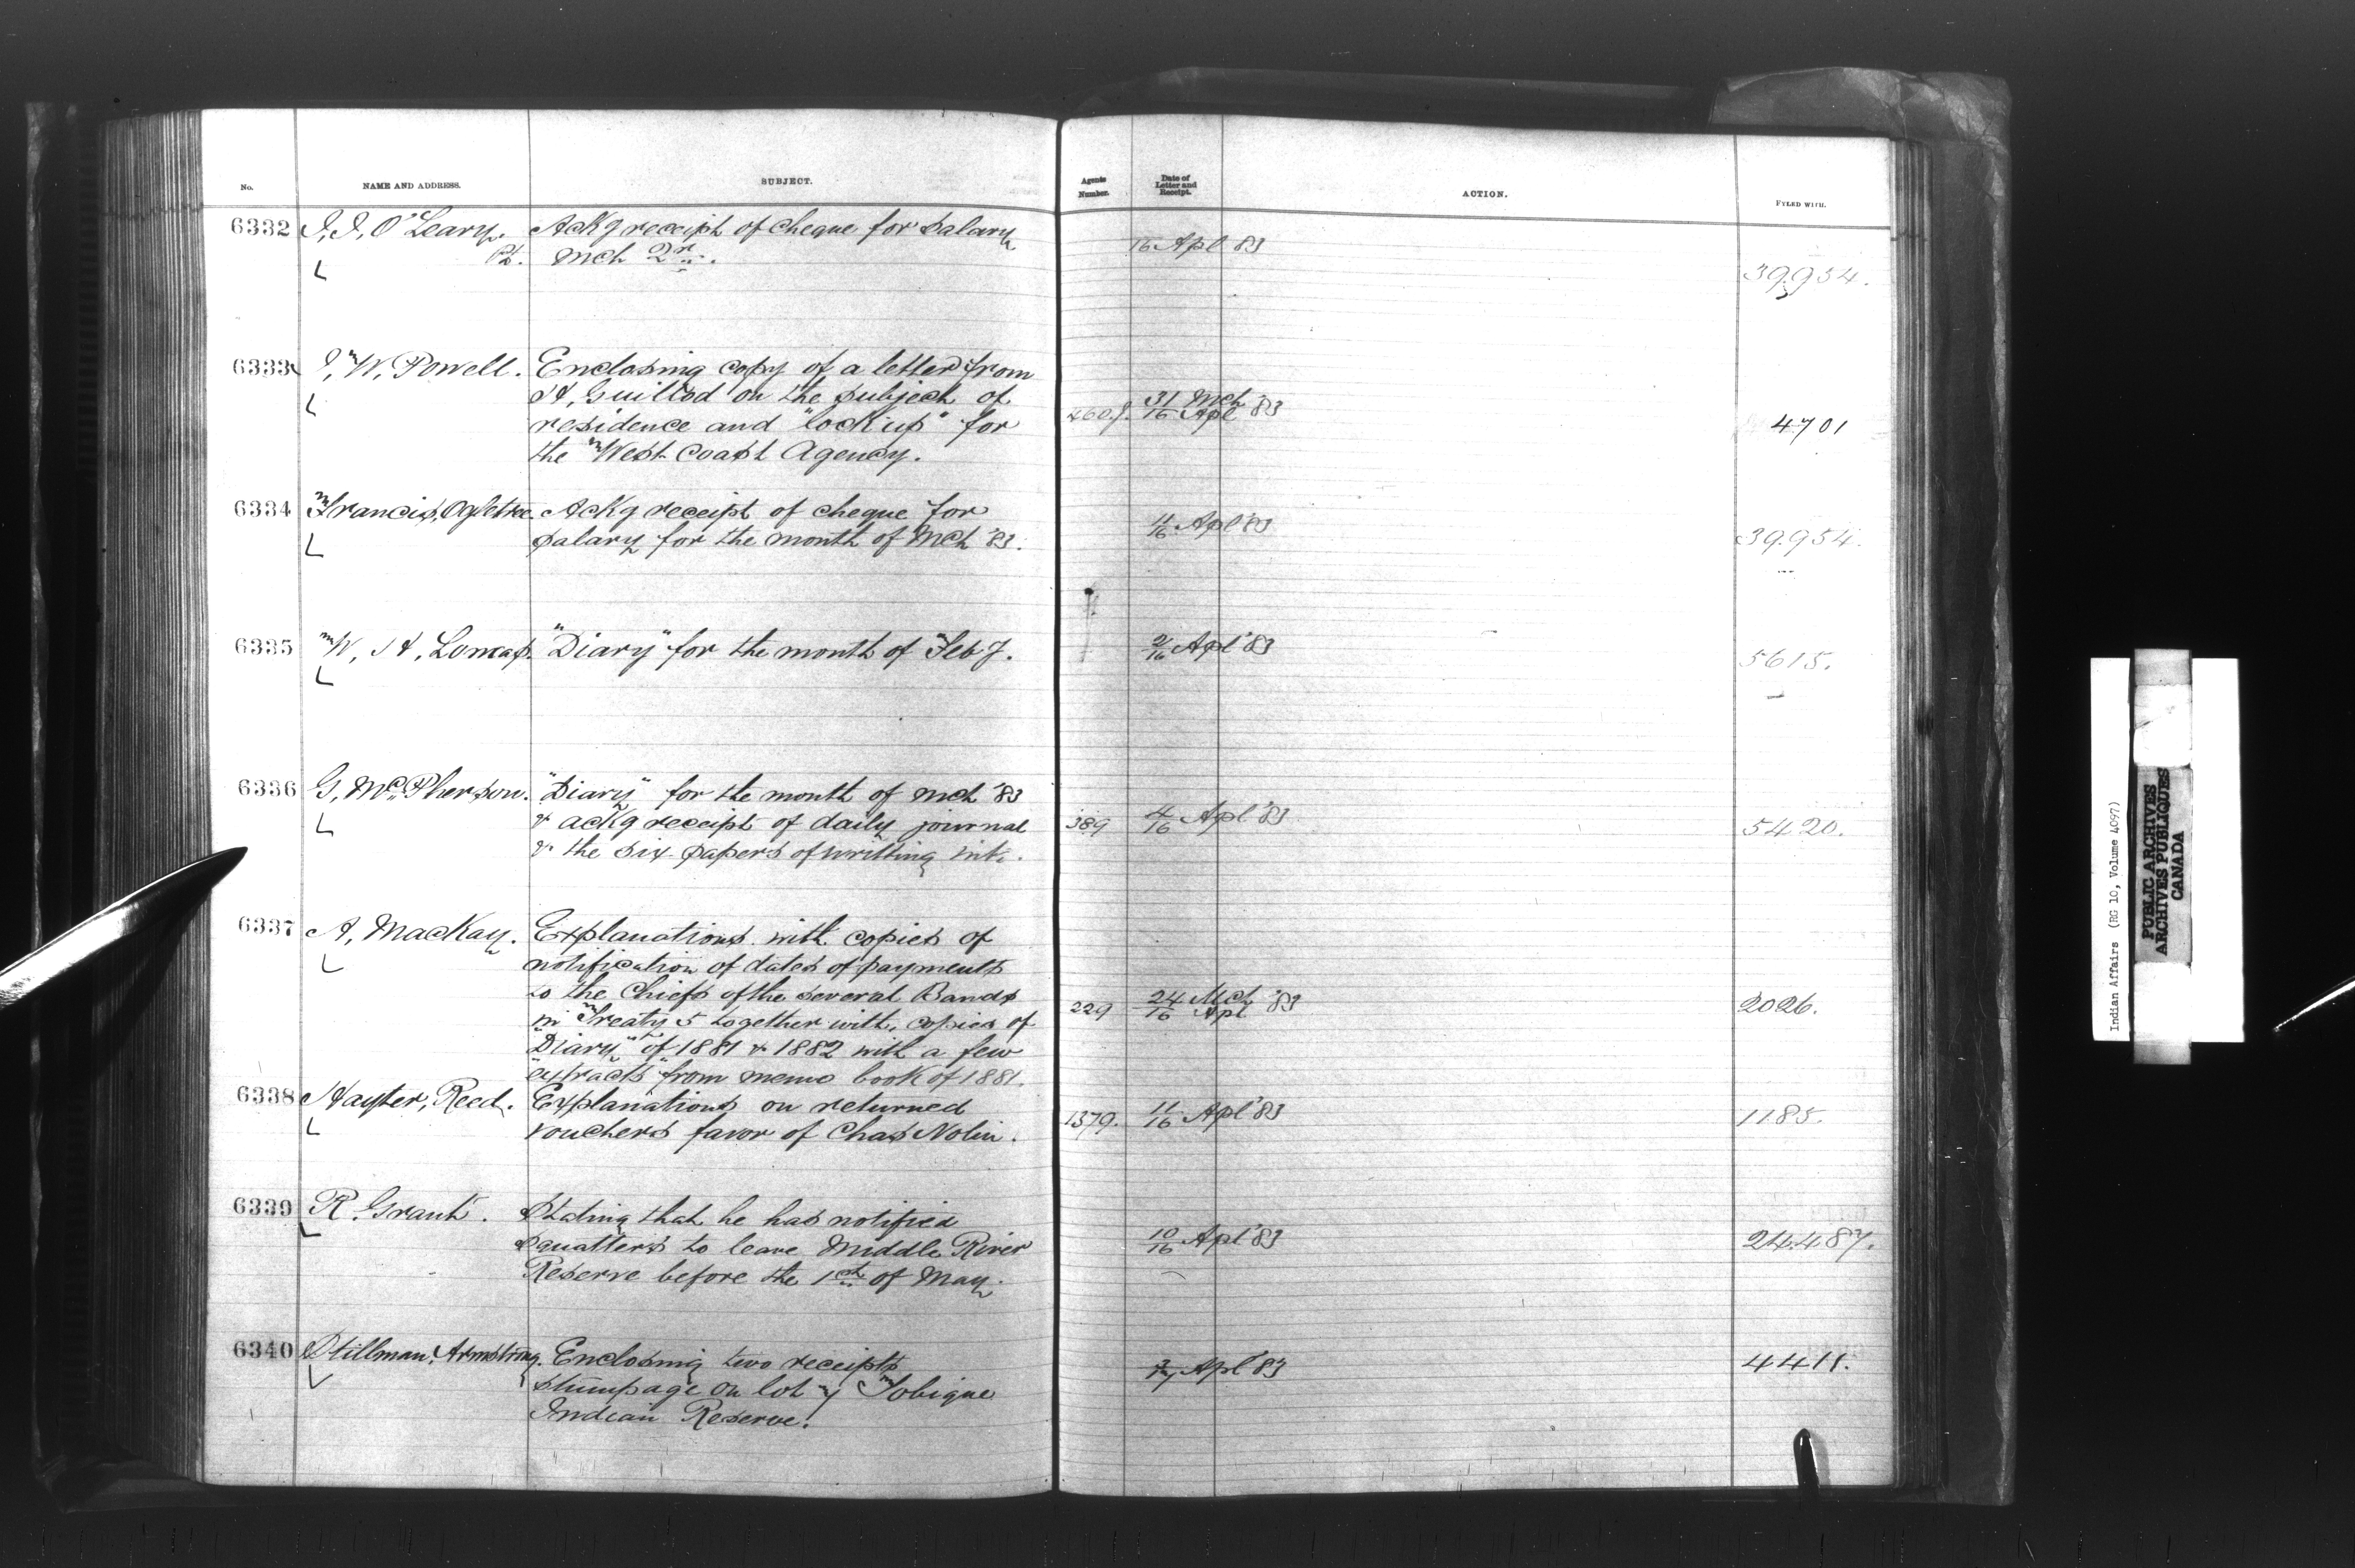 No. NAME AND ADDRESS. SUBJECT. Agents Number. Date of Letter and Receipt. ACTION. FYLED WITH.
6332 J. J. O'Leary. Ackg receipt of cheque for salary
Pt. Mch 2nd. 16 Apl 83 39954.
6333 J. W. Powell. Enclosing copy of a letter from
H. Guillod on the subject of
residence and "lock up" for 460. 31 Mch / 16 Apl '83 4701
the West Coast Agency.
6334 Francis Ogletree. Ackg receipt of cheque for
salary for the month of Mch '83. 11/16 Apl '83 39.954.
6335 W. H. Lomas. "Diary" for the month of Feby. 2/16 Apl '83 5615.
6336 G. McPherson. "Diary" for the month of Mch '83
& ackg receipt of daily journal 389 4/16 Apl '83 5420.
& the six papers of writing ink.
6337 A. MacKay. Explanations with copies of
notification of dates of payments
to the Chiefs of the several Bands
in Treaty 5 together with, copies of 229 24 Mch / 16 Apl '83 2026.
"Diary" of 1881 & 1882 with a few
"extracts" from memo book of 1881.
6338 Hayter, Reed. Explanations on returned
vouchers favor of Chas Nolin. 1379. 11/16 Apl '83 1185.
6339 R. Grant. Stating that he has notified
squatters to leave Middle River 10/16 Apl '83 24.487.
Reserve before the 1st of May.
6340 Stillman, Armstrong. Enclosing two receipts Apl '83 4411.
stumpage on lot Tobique
Indian Reserve.
Indian Affairs (RG 10, Volume 4097)
PUBLIC ARCHIVES
ARCHIVES PUBLIQUES
CANADA